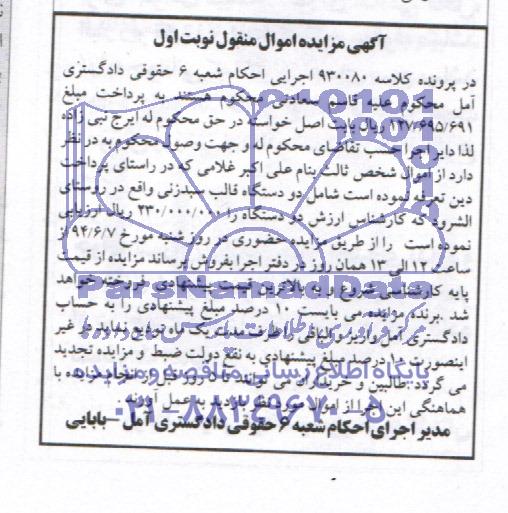 آگهی مزایده اموال منقول نوبت اول
در پرونده کلاسه ۹۳۰۰۸۰ اجرایی احکام شعبه ۶ حقوقی دادگستری
آمل محکوم علیه قاسم سعادتی محکوم هستند به پرداخت مبلغ
۱۲۷/۶۹۵/۶۹۱ ریال بابت اصل خواسته در حق محکوم له ایرج نبی زاده
لذا دایر اجرا حسب تقاضای محکوم له و جهت وصول محکوم به در نظر
دارد از اموال شخص ثالث بنام علی اکبر غلامی که در راستای پرداخت
دین تعرفه نموده است شامل دو دستگاه قالب سبدزنی واقع در روستای
الشرود که کارشناس ارزش دو دستگاه را ۲۳۰/۰۰۰/۰۰۰ ریال ارزیابی
نموده است را از طریق مزایده حضوری در روز شنبه مورخ ۹۴/۶/۷ از
ساعت ۱۲ الی ۱۳ همان روز در دفتر اجرا بفروش برساند مزایده از قیمت
پایه کارشناسی شروع و به بالاترین قیمت پیشنهادی فروخته خواهد
شد .برنده مزایده می بایست ۱۰ درصد مبلغ پیشنهادی را به حساب
دادگستری آمل واریز و الباقی را ظرف مدت یک ماه تودیع نماید در غیر
اینصورت ۱۰ درصد مبلغ پیشنهادی به نفع دولت ضبط و مزایده تجدید
می گردد .طالبین و خریداران می توانند تا ۵ روز قبل از انجام مزایده با
هماهنگی این اجرا از اموال مورد نظر بازدید به عمل آورند
مدیر اجرای احکام شعبه ۶ حقوقی دادگستری آمل – بابایی
ParsNamadData
پایگاه اطلاع رسانی مناقصه و مزایده
۰۲۱-۸۸۳۴۹۶۷۰-۵